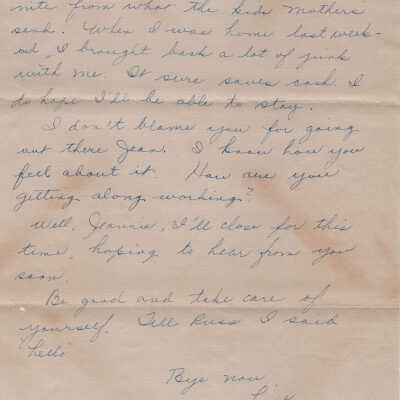 nite from what the kids mothers
send. When I was home last week-
end, I brought back a lot of junk
with me. It sure saves cash. I
do hope I'll be able to stay.
I don't blame you for going
out there Jean. I know how you
feel about it. How are you
getting along working?
Well, Jeannie, I'll close for this
time, hoping to hear from you
soon.
Be good and take care of
yourself. Tell Russ I said
"hello"
Bye now.